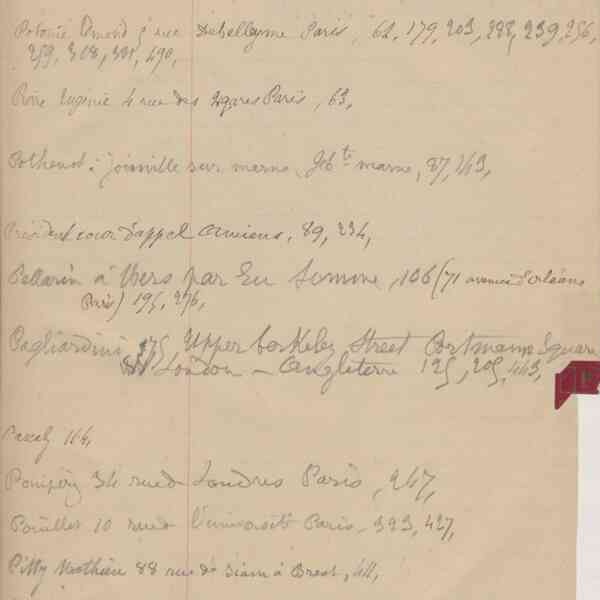 rue Debelleyme Paris, 62, 179, 203, 228, 239, 256,
259, 308, 331, 490,
Eugénie 4 rue des Paris, 63,
Pothenot, Joinville sur marne, Hte marne, 87, 143,
Président cour d'appel Amiens, 89, 234,
Pellarin à thers par Eu Somme, 106 (71 avenue d'orléans
Paris) 195, 276,
Pagliardini 75 Upper berkeley Street Portmann Square
London – Angleterre 125, 205, 463,
164,
34 rue de Londres Paris, 247,
Pouillet 10 rue de l'université Paris, 393, 427,
Pitty Mathieu 88 rue de Siam à Brest, 411,
F